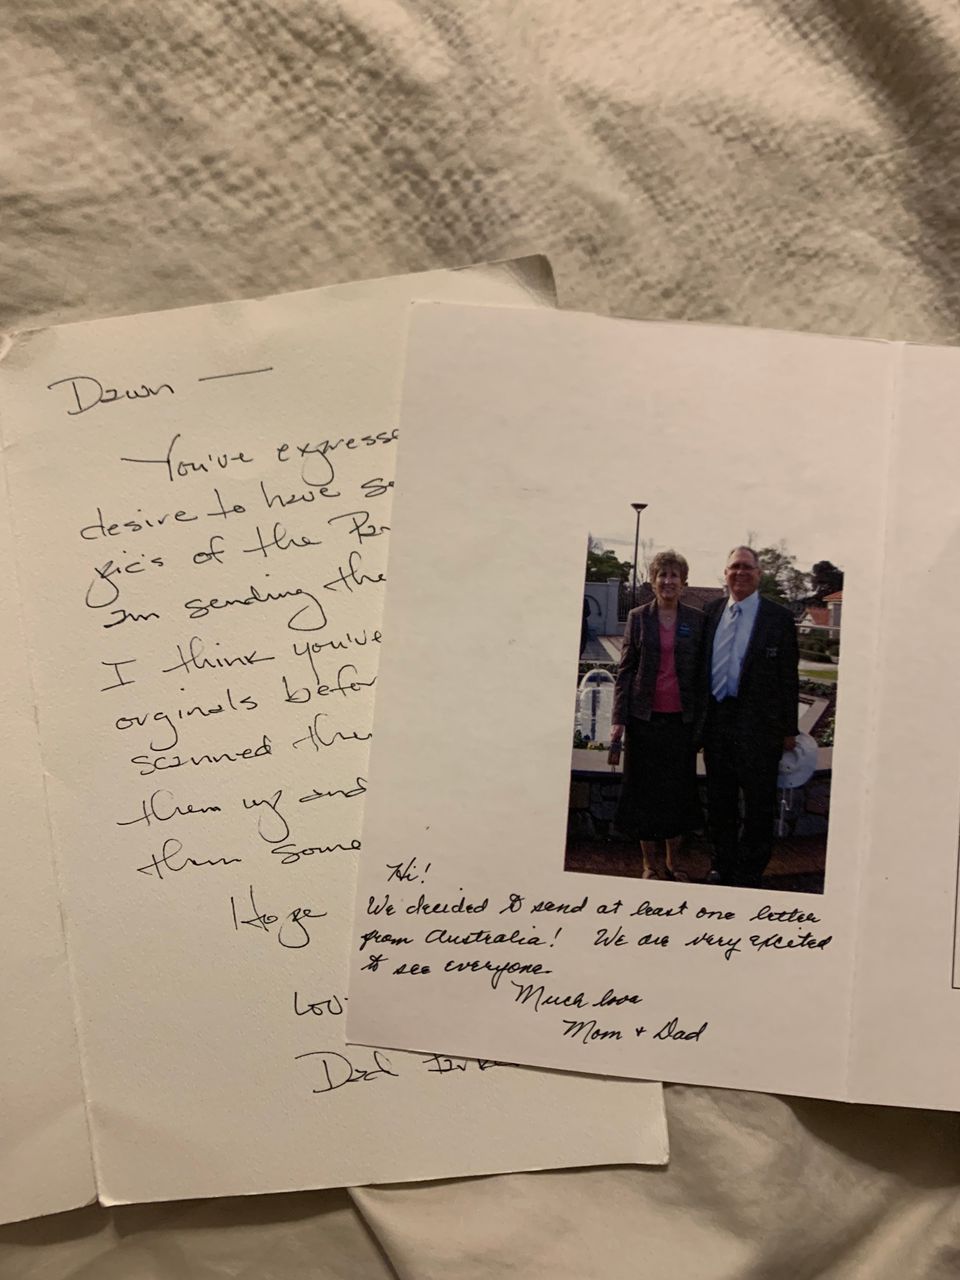 Dawn —
You've express
desire to have s
pic's of the Par
I'm sending the
I think you've
orginals befor
scanned the
them up and
them some
Hope
Lov
Dad
Hi!
We decided to send at least one letter
from Australia! We are very excited
to see everyone.
Much love
Mom + Dad